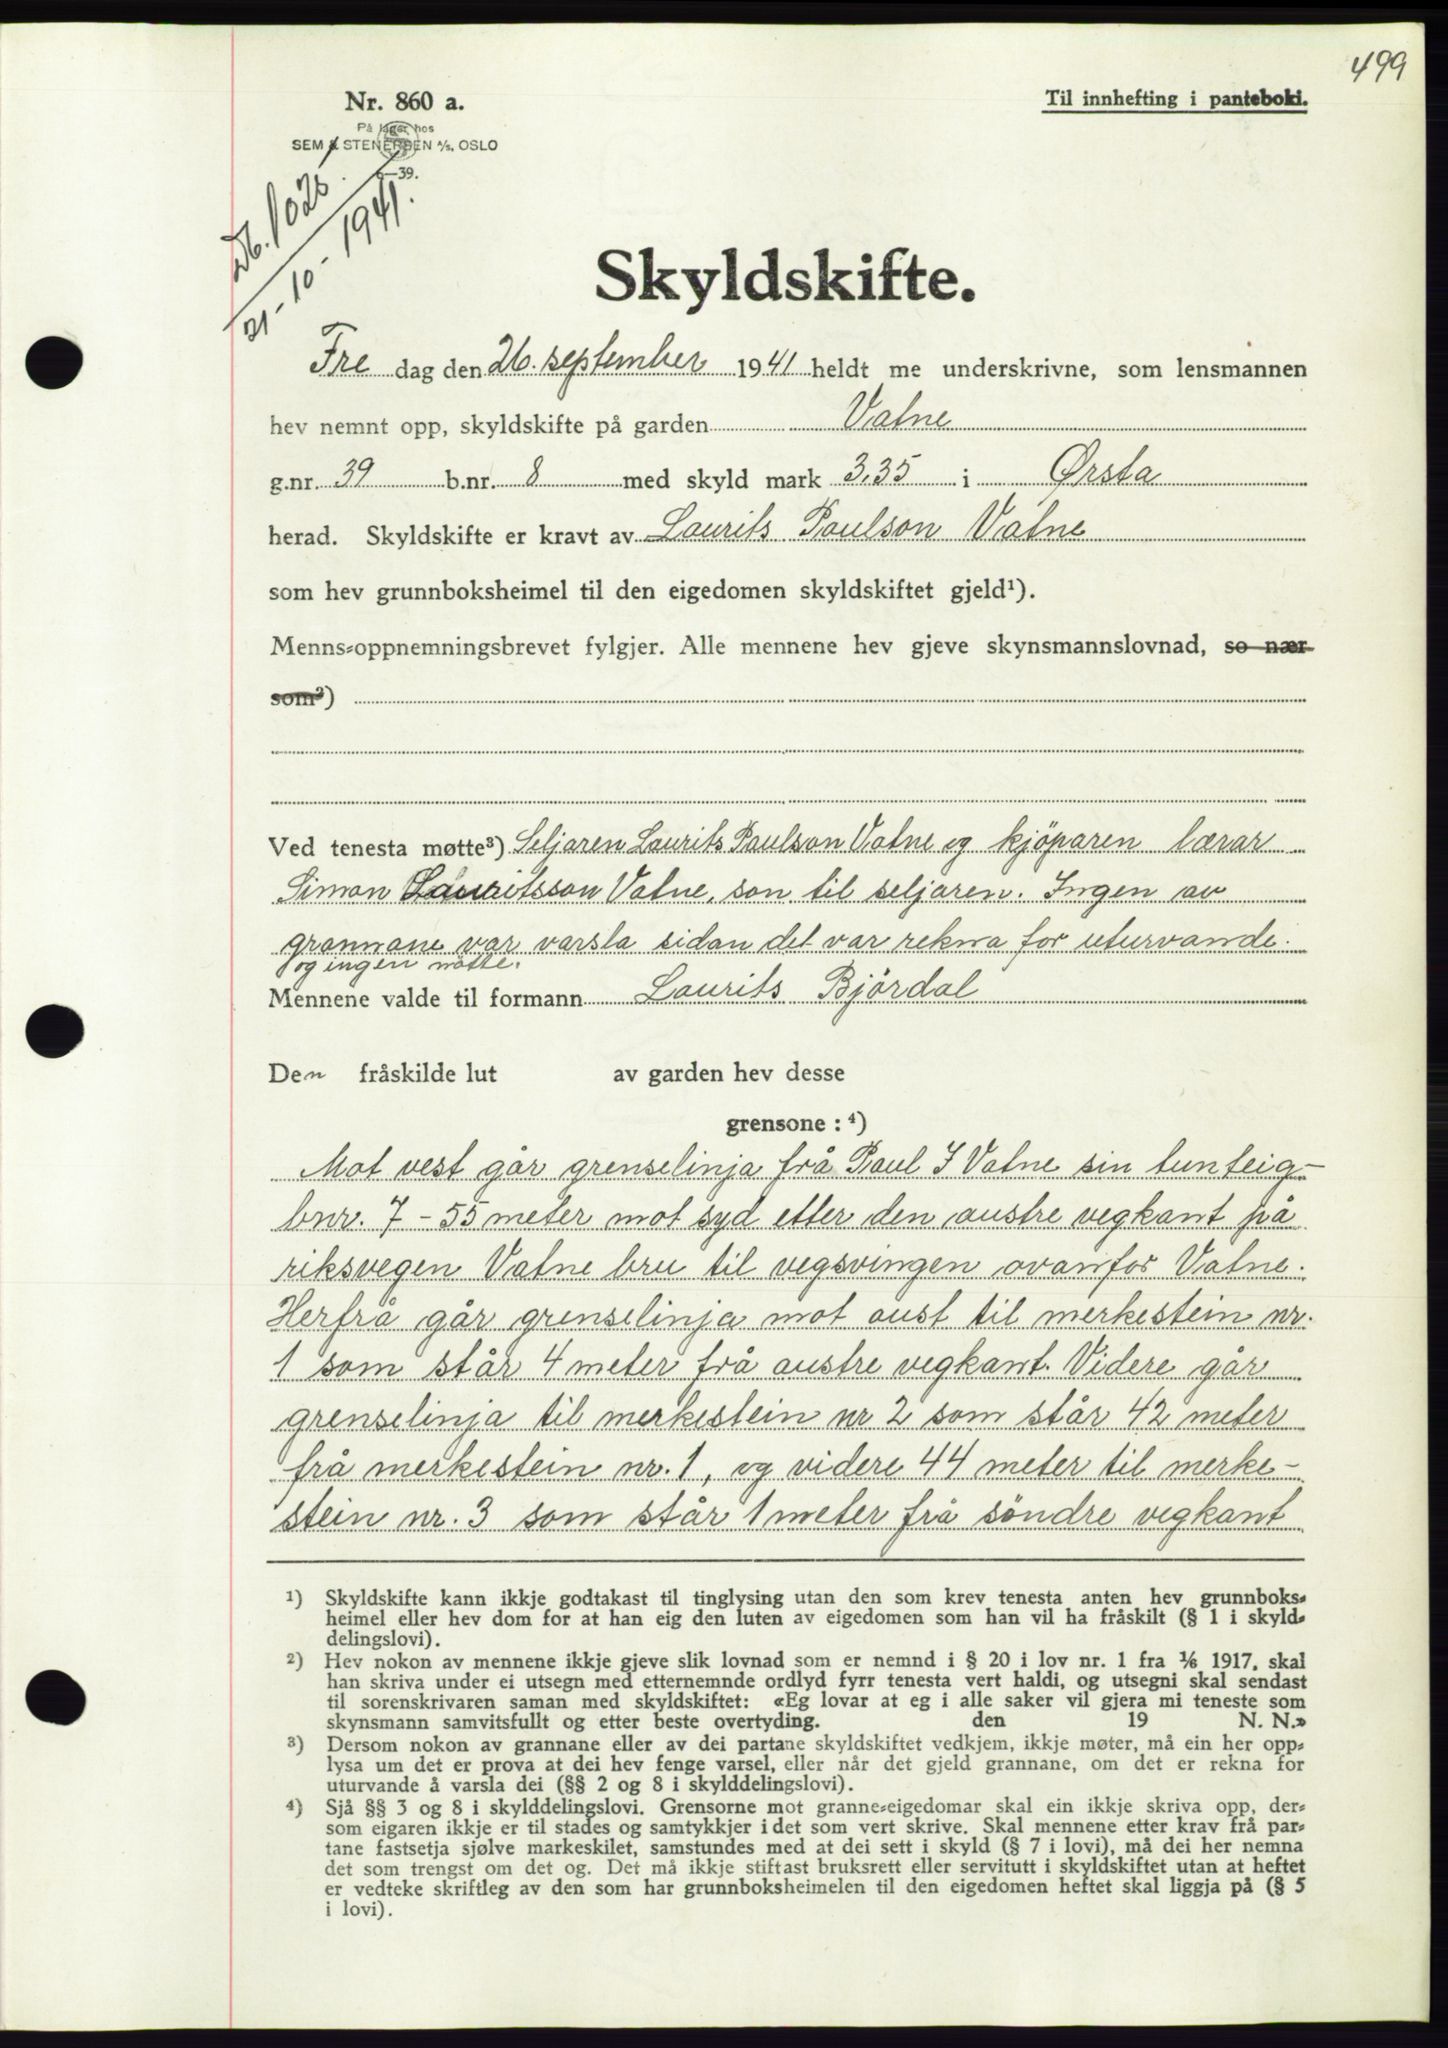 499
Nr. 860 a.
Til innhefting i panteboki.
På lager hos
SEM & STENERSEN A/S, OSLO
6—39.
Db. 1025
21-10-1941.
Skyldskifte.
Fre dag den 26. september 1941 heldt me underskrivne, som lensmannen
hev nemnt opp, skyldskifte på garden Vatne
g.nr. 39 b.nr. 8 med skyld mark 3,35 i Ørsta
herad. Skyldskifte er kravt av Laurits Paulson Vatne
som hev grunnboksheimel til den eigedomen skyldskiftet gjeld¹).
Menns-oppnemningsbrevet fylgjer. Alle mennene hev gjeve skynsmannslovnad, so nær
som²)
Ved tenesta møtte³) Seljaren Laurits Paulson Vatne og kjöparen lærar
Simon Lauritsson Vatne, son til seljaren. Ingen av
grannane var varsla sidan det var rekna for uturvande.
og ingen møtte.
Mennene valde til formann Laurits Björdal
Den fråskilde lut av garden hev desse
grensone : ⁴)
Mot vest går grenselinja frå Paul J Vatne sin tunteig-
bnr. 7 - 55 meter mot syd etter den austre vegkant på
riksvegen Vatne bru til vegsvingen ovanfor Vatne.
Herfrå går grenselinja mot aust til merkestein nr.
1 som står 4 meter frå austre vegkant. Videre går
grenselinja til merkestein nr 2 som står 42 meter
frå merkestein nr. 1, og videre 44 meter til merke-
stein nr. 3 som står 1 meter frå söndre vegkant
¹) Skyldskifte kann ikkje godtakast til tinglysing utan den som krev tenesta anten hev grunnboks-
heimel eller hev dom for at han eig den luten av eigedomen som han vil ha fråskilt (§ 1 i skyld-
delingslovi).
²) Hev nokon av mennene ikkje gjeve slik lovnad som er nemnd i § 20 i lov nr. 1 fra ¹/₆ 1917, skal
han skriva under ei utsegn med etternemnde ordlyd fyrr tenesta vert haldi, og utsegni skal sendast
til sorenskrivaren saman med skyldskiftet: «Eg lovar at eg i alle saker vil gjera mi teneste som
skynsmann samvitsfullt og etter beste overtyding. den 19 N. N.»
³) Dersom nokon av grannane eller av dei partane skyldskiftet vedkjem, ikkje møter, må ein her opp-
lysa um det er prova at dei hev fenge varsel, eller når det gjeld grannane, om det er rekna for
uturvande å varsla dei (§§ 2 og 8 i skylddelingslovi).
⁴) Sjå §§ 3 og 8 i skylddelingslovi. Grensorne mot granne-eigedomar skal ein ikkje skriva opp, der-
som eigaren ikkje er til stades og samtykkjer i det som vert skrive. Skal mennene etter krav frå par-
tane fastsetja sjølve markeskilet, samstundes med at dei sett i skyld (§ 7 i lovi), må dei her nemna
det som trengst om det og. Det må ikkje stiftast bruksrett eller servitutt i skyldskiftet utan at heftet
er vedteke skriftleg av den som har grunnboksheimelen til den eigedomen heftet skal liggja på (§ 5
i lovi).